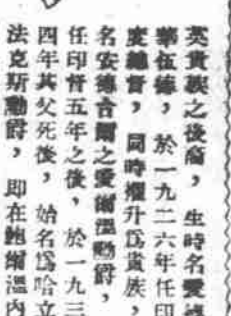 英貴族之後裔，生時名愛德
華伍德，於一九二六年任印
度總督，同時擢升爲貴族，
名安德合爾之愛爾溫勳爵，
任印督五年之後，於一九三
四年其父死後，始名爲哈立
法克斯勳爵，即在鮑爾溫內